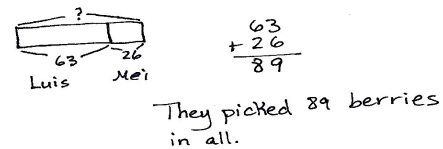 ?
63
26
Luis
Mei
63
+ 26
89
They picked 89 berries
in all.